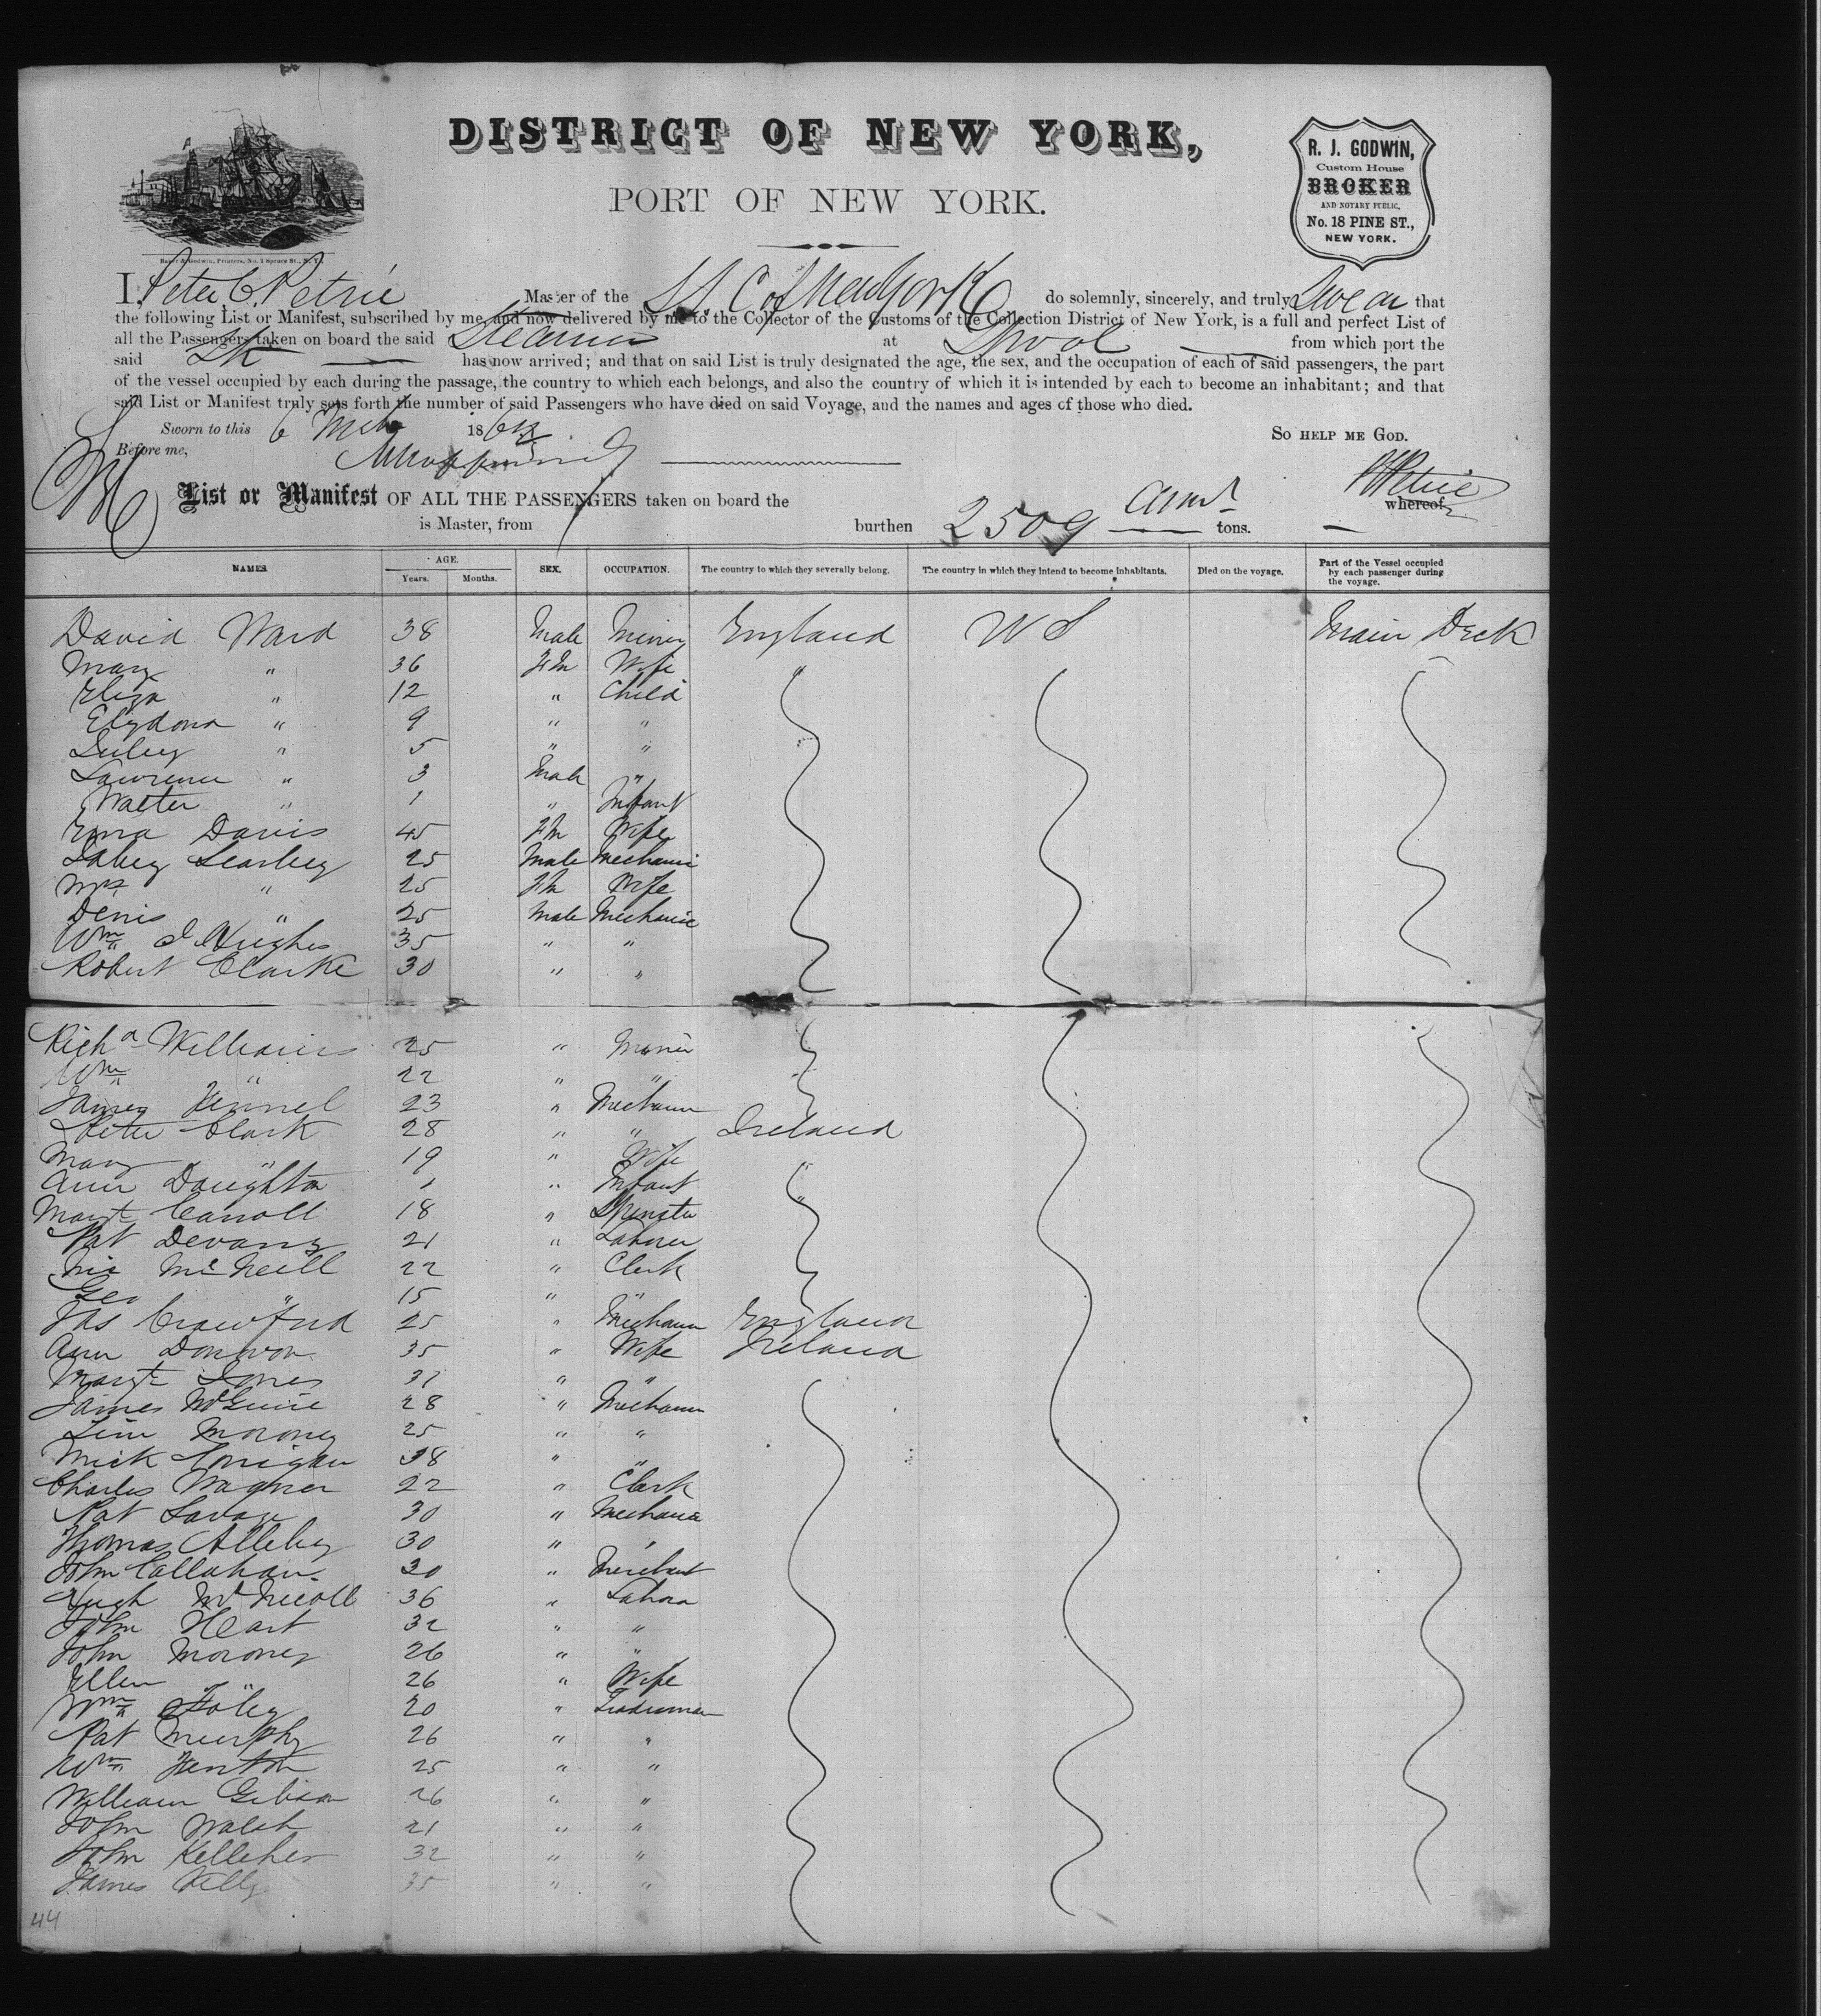 DISTRICT OF NEW YORK,
PORT OF NEW YORK.
R. J. GODWIN,
Custom House
BROKER
AND NOTARY PUBLIC,
No. 18 PINE ST.,
NEW YORK.
Baker & Godwin, Printers, No. 1 Spruce St., N. Y.
I, Peter C. Petrie Master of the S.S. C of New York do solemnly, sincerely, and truly Swear that
the following List or Manifest, subscribed by me, and now delivered by me to the Collector of the Customs of the Collection District of New York, is a full and perfect List of
all the Passengers taken on board the said Steamer at Lpool from which port the
said Str has now arrived; and that on said List is truly designated the age, the sex, and the occupation of each of said passengers, the part
of the vessel occupied by each during the passage, the country to which each belongs, and also the country of which it is intended by each to become an inhabitant; and that
said List or Manifest truly sets forth the number of said Passengers who have died on said Voyage, and the names and ages of those who died.
Sworn to this 6 Mch 186
SO HELP ME GOD.
Before me,
List or Manifest OF ALL THE PASSENGERS taken on board the whereof
is Master, from burthen 2509 tons.
NAMES. AGE. Years. Months. SEX. OCCUPATION. The country to which they severally belong. The country in which they intend to become inhabitants. Died on the voyage. Part of the Vessel occupied by each passenger during the voyage.
David Ward 38 Male Miner England U S Main Deck
Mary " 36 Fm Wife
Eliza " 12 " Child
" 9 " "
" 5 " "
Lawrence " 3 Male "
Walter " 1 " Infant
Davis 45 Fm Wife
25 Male Mechanic
Mrs " 25 Fm Wife
Denis " 25 Male Mechanic
Wm J Hughes 35 " "
Robert Clarke 30 " "
Richd Williams 25 " Miner
Wm " 22 " "
James Kennel 23 " Mechanic
Peter Clark 28 " " Ireland
Mary " 19 " Wife
Ann Daughter 1 " Infant
Margt Carroll 18 " Spinster
Pat Devany 21 " Laborer
McNeill 22 " Clerk
Geo " 15 " "
Jas Crawford 25 " Mechanic England
Ann Donovon 35 " Wife Ireland
Margt Jones 31 " "
James McGuire 28 " Mechanic
Tim Moroney 25 " "
Mick Corrigan 38 " "
Charles Wagner 22 " Clerk
Pat Savage 30 " Mechanic
Thomas 30 " "
John Callahan 30 " Merchant
Hugh McNicoll 36 " Labora
John Heart 32 " "
John Moroney 26 " "
Ellen " 26 " Wife
Wm Foley 20 " Tradesman
Pat Murphy 26 " "
Wm Fenton 25 " "
William Gibson 26 " "
John Walsh 21 " "
John Kelleher 32 " "
James Kelly 35 " "
44